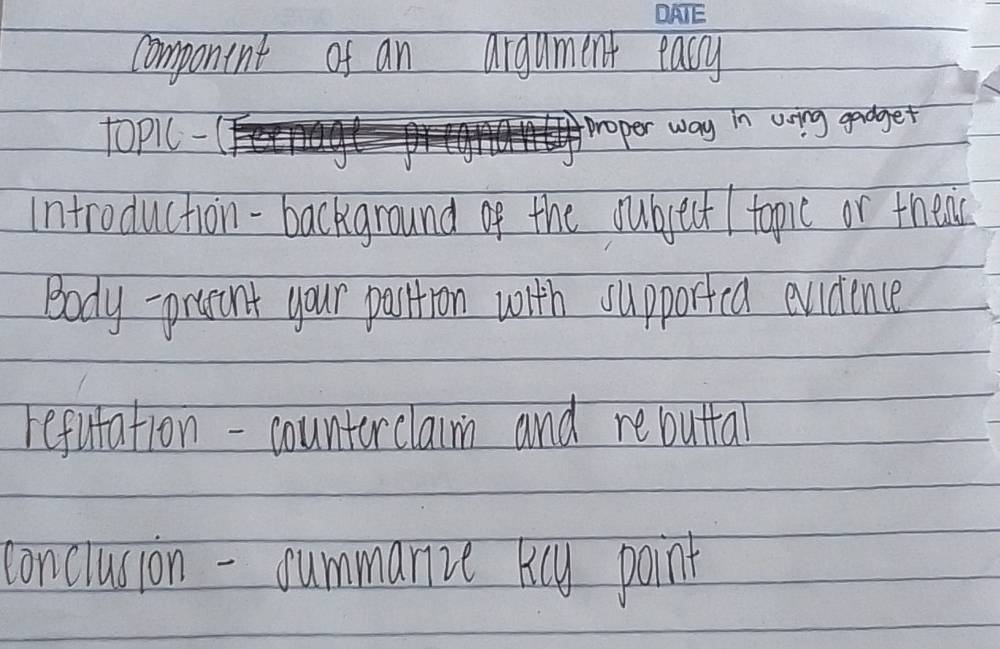 DATE
Component of an argument easy
TOPIC - (Teenage pregnancy) proper way in using gadget
Introduction - background of the subject / topic or thesis
Body - present your position with supported evidence
refutation - counterclaim and rebuttal
Conclusion - summarize key point